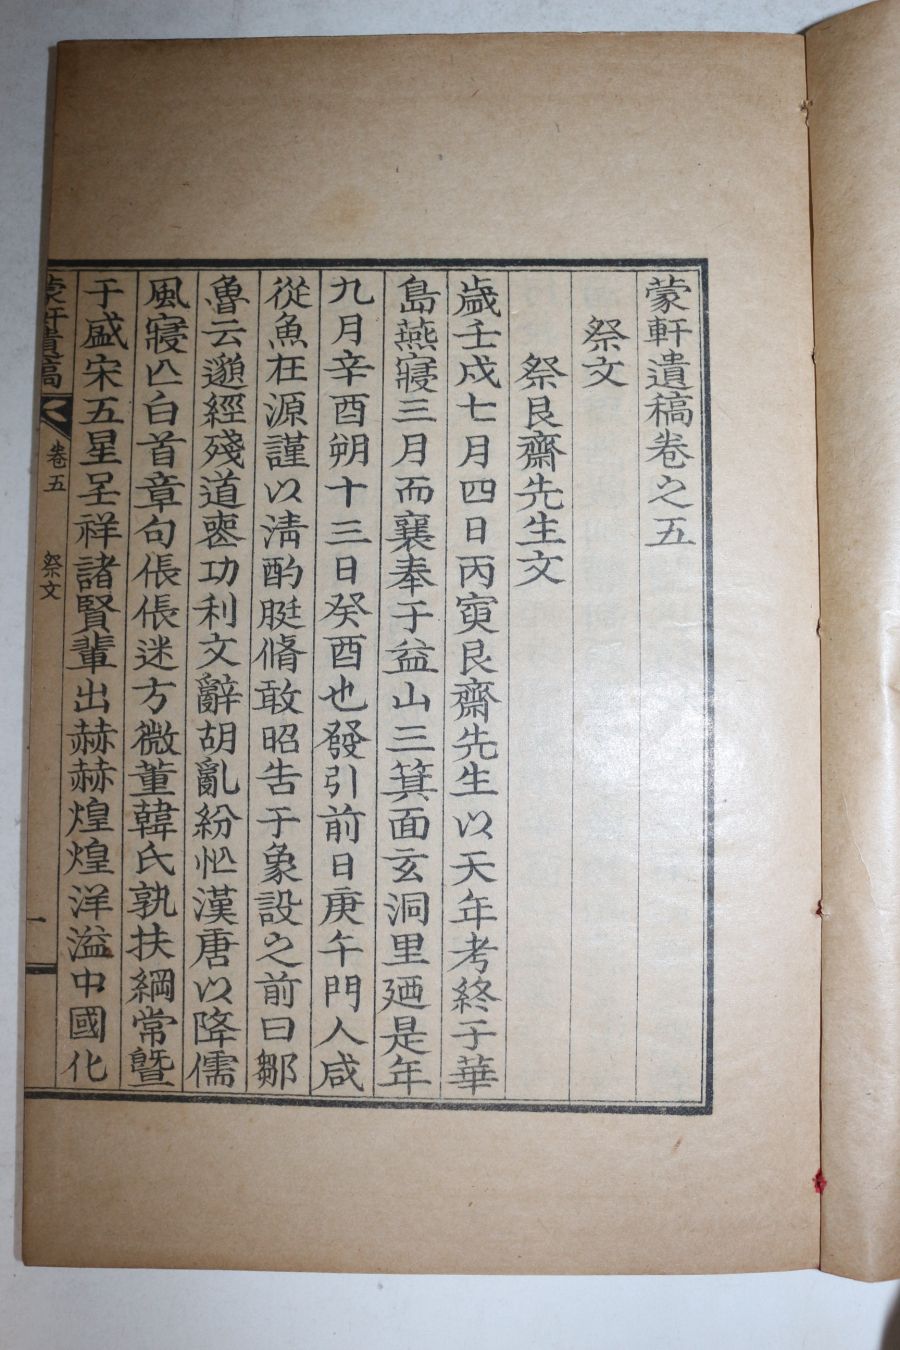 蒙軒遺稿卷之五
祭文
祭艮齋先生文
歲壬戌七月四日丙寅艮齋先生以天年考終于華
島燕寢三月而襄奉于益山三箕面玄洞里廼是年
九月辛酉朔十三日癸酉也發引前日庚午門人咸
從魚在源謹以淸酌脡脩敢昭告于象設之前曰鄒
魯云邈經殘道喪功利文辭胡亂紛怭漢唐以降儒
風寝亾白首章句倀倀迷方微董韓氏孰扶綱常曁
于盛宋五星呈祥諸賢輩出赫赫煌煌洋溢中國化
蒙軒遺稿
卷五
祭文
一